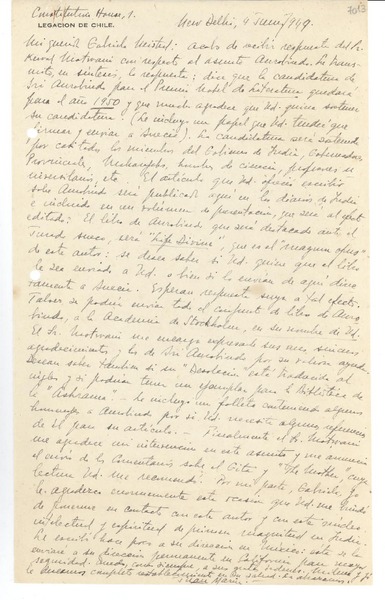 Constitution House, 1.
LEGACION DE CHILE.
New Delhi, 4 Junio/949.
Mi querida Gabriela Mistral: acabo de recibir respuesta del Sr.
Motwani con respecto al asunto Aurobindo. Le trans-
mito, en síntesis, la respuesta: dice que la candidatura de
Sri Aurobindo para el Premio Nobel de Literatura quedará
para el año 1950 y que mucho agradece que Ud. quiera sostener
su candidatura (Le incluyo un papel que Ud. tendrá que
firmar y enviar a Suecia). La candidatura será sostenida
por casi todos los miembros del Gabinete de India, Gobernadores
Provinciales, hombres de ciencia, profesores u
universitarios, etc. El artículo que Ud. ofreció escribir
sobre Aurobindo será publicado aquí en los diarios de India
e incluído en un volumen de presentación, que será al efecto
editado: El libro de Aurobindo que será destacado ante el
Jurado sueco, será "Life Divine", que es el "magnum opus"
de este autor: se desea saber si Ud. quiere que el libro
le sea enviado a Ud. o bien si lo envían de aquí direc-
tamente a Suecia. Esperan respuesta suya a tal efecto.
Talvez se podría enviar todo el conjunto de libros de Auro-
bindo, a la Academia de Stockholm, en su nombre de Ud.
El Sr. Motwani me encarga expresarle sus más sinceros
agradecimientos y los de Sri Aurobindo por su valiosa ayuda.
Desean saber también si su "Desolación" está traducido al
inglés y si podrían tener un ejemplar para la Biblioteca de
le "Ashrama". Le incluyo un folleto conteniendo algunos
homenajes a Aurobindo por si Ud. necesita algunas referencias
de él para su artículo. — Finalmente el Sr. Motwani
me agradece mi intervención en este asunto y me anuncia
el envío de los Comentarios sobre el Gita y "The Mother", cuya
lectura Ud. me recomendó. Por mi parte, Gabriela, yo
le agradezco enormemente esta ocasión que Ud. me brindó
de ponerme en contacto con este autor y con este núcleo
intelectual y espiritual de primera magnitud en India.
Le escribí hace poco a su dirección en México: esta se la
enviaré a su dirección permanente en California para mayor
seguridad. Quedo, como siempre, a sus gratas órdenes.
le deseamos completo restablecimiento en su salud. La abrazamos.